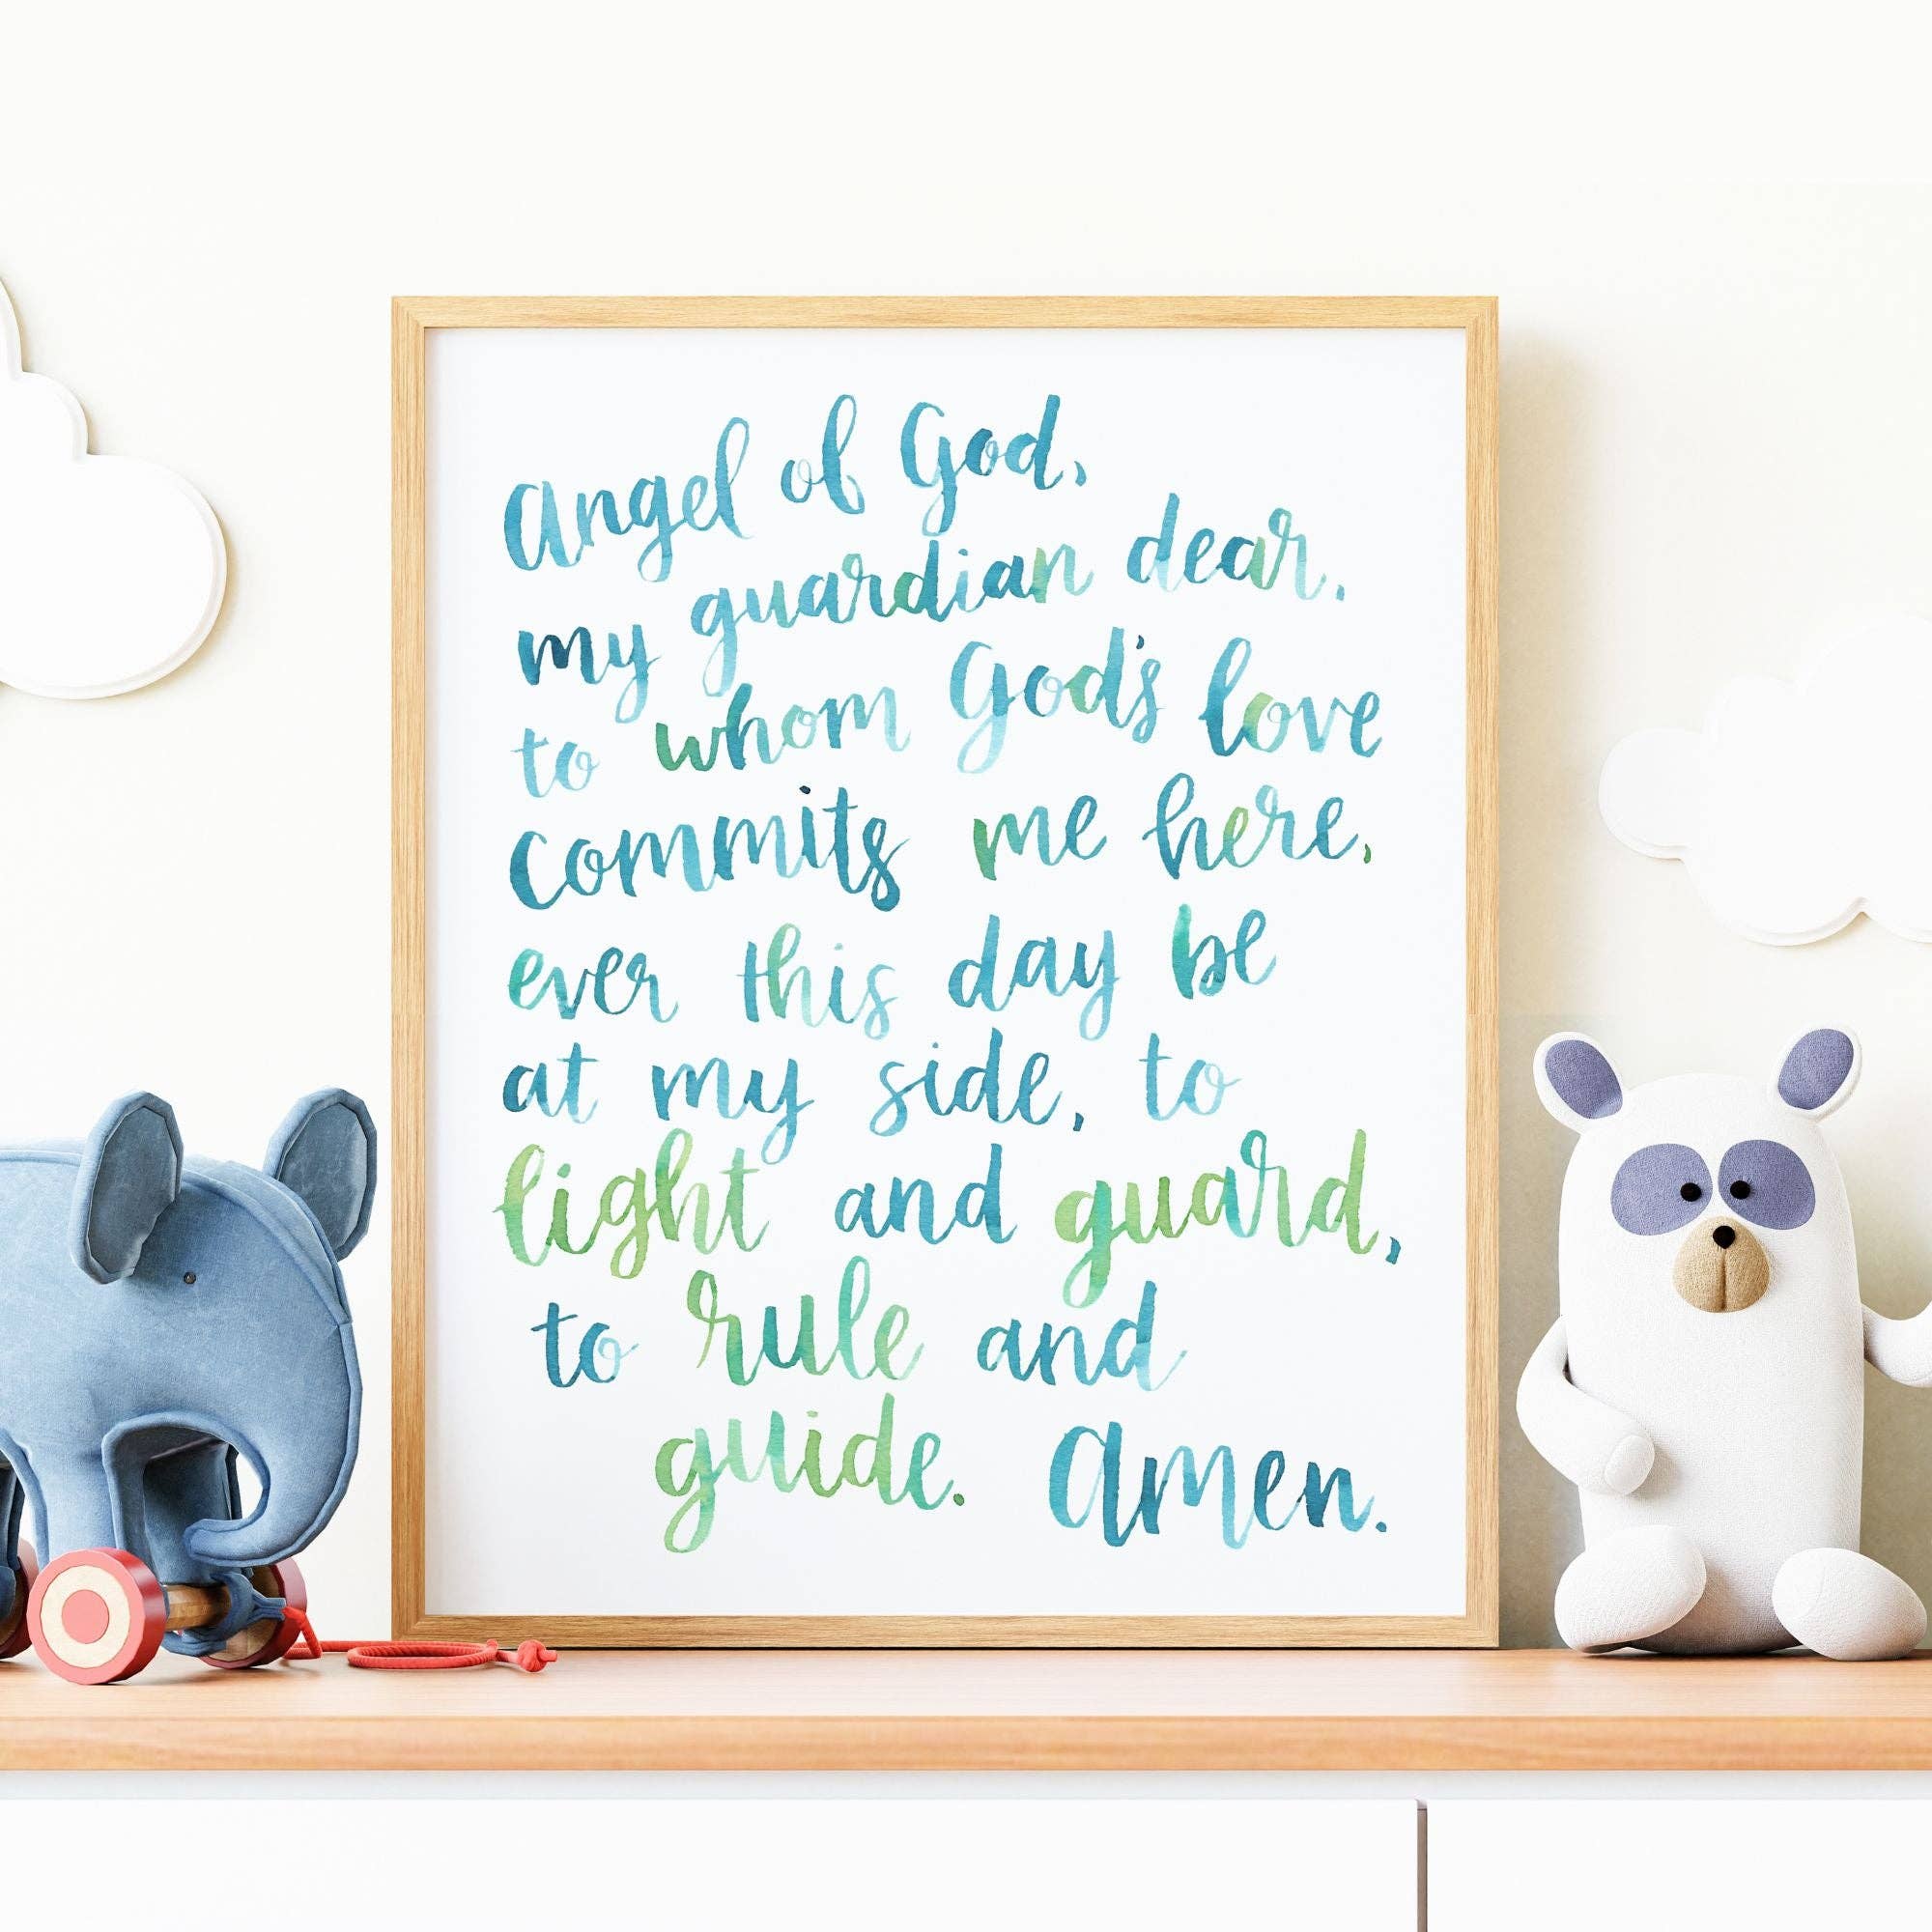 Angel of God,
my guardian dear,
to whom God's love
commits me here,
ever this day be
at my side, to
light and guard,
to rule and
guide. Amen.